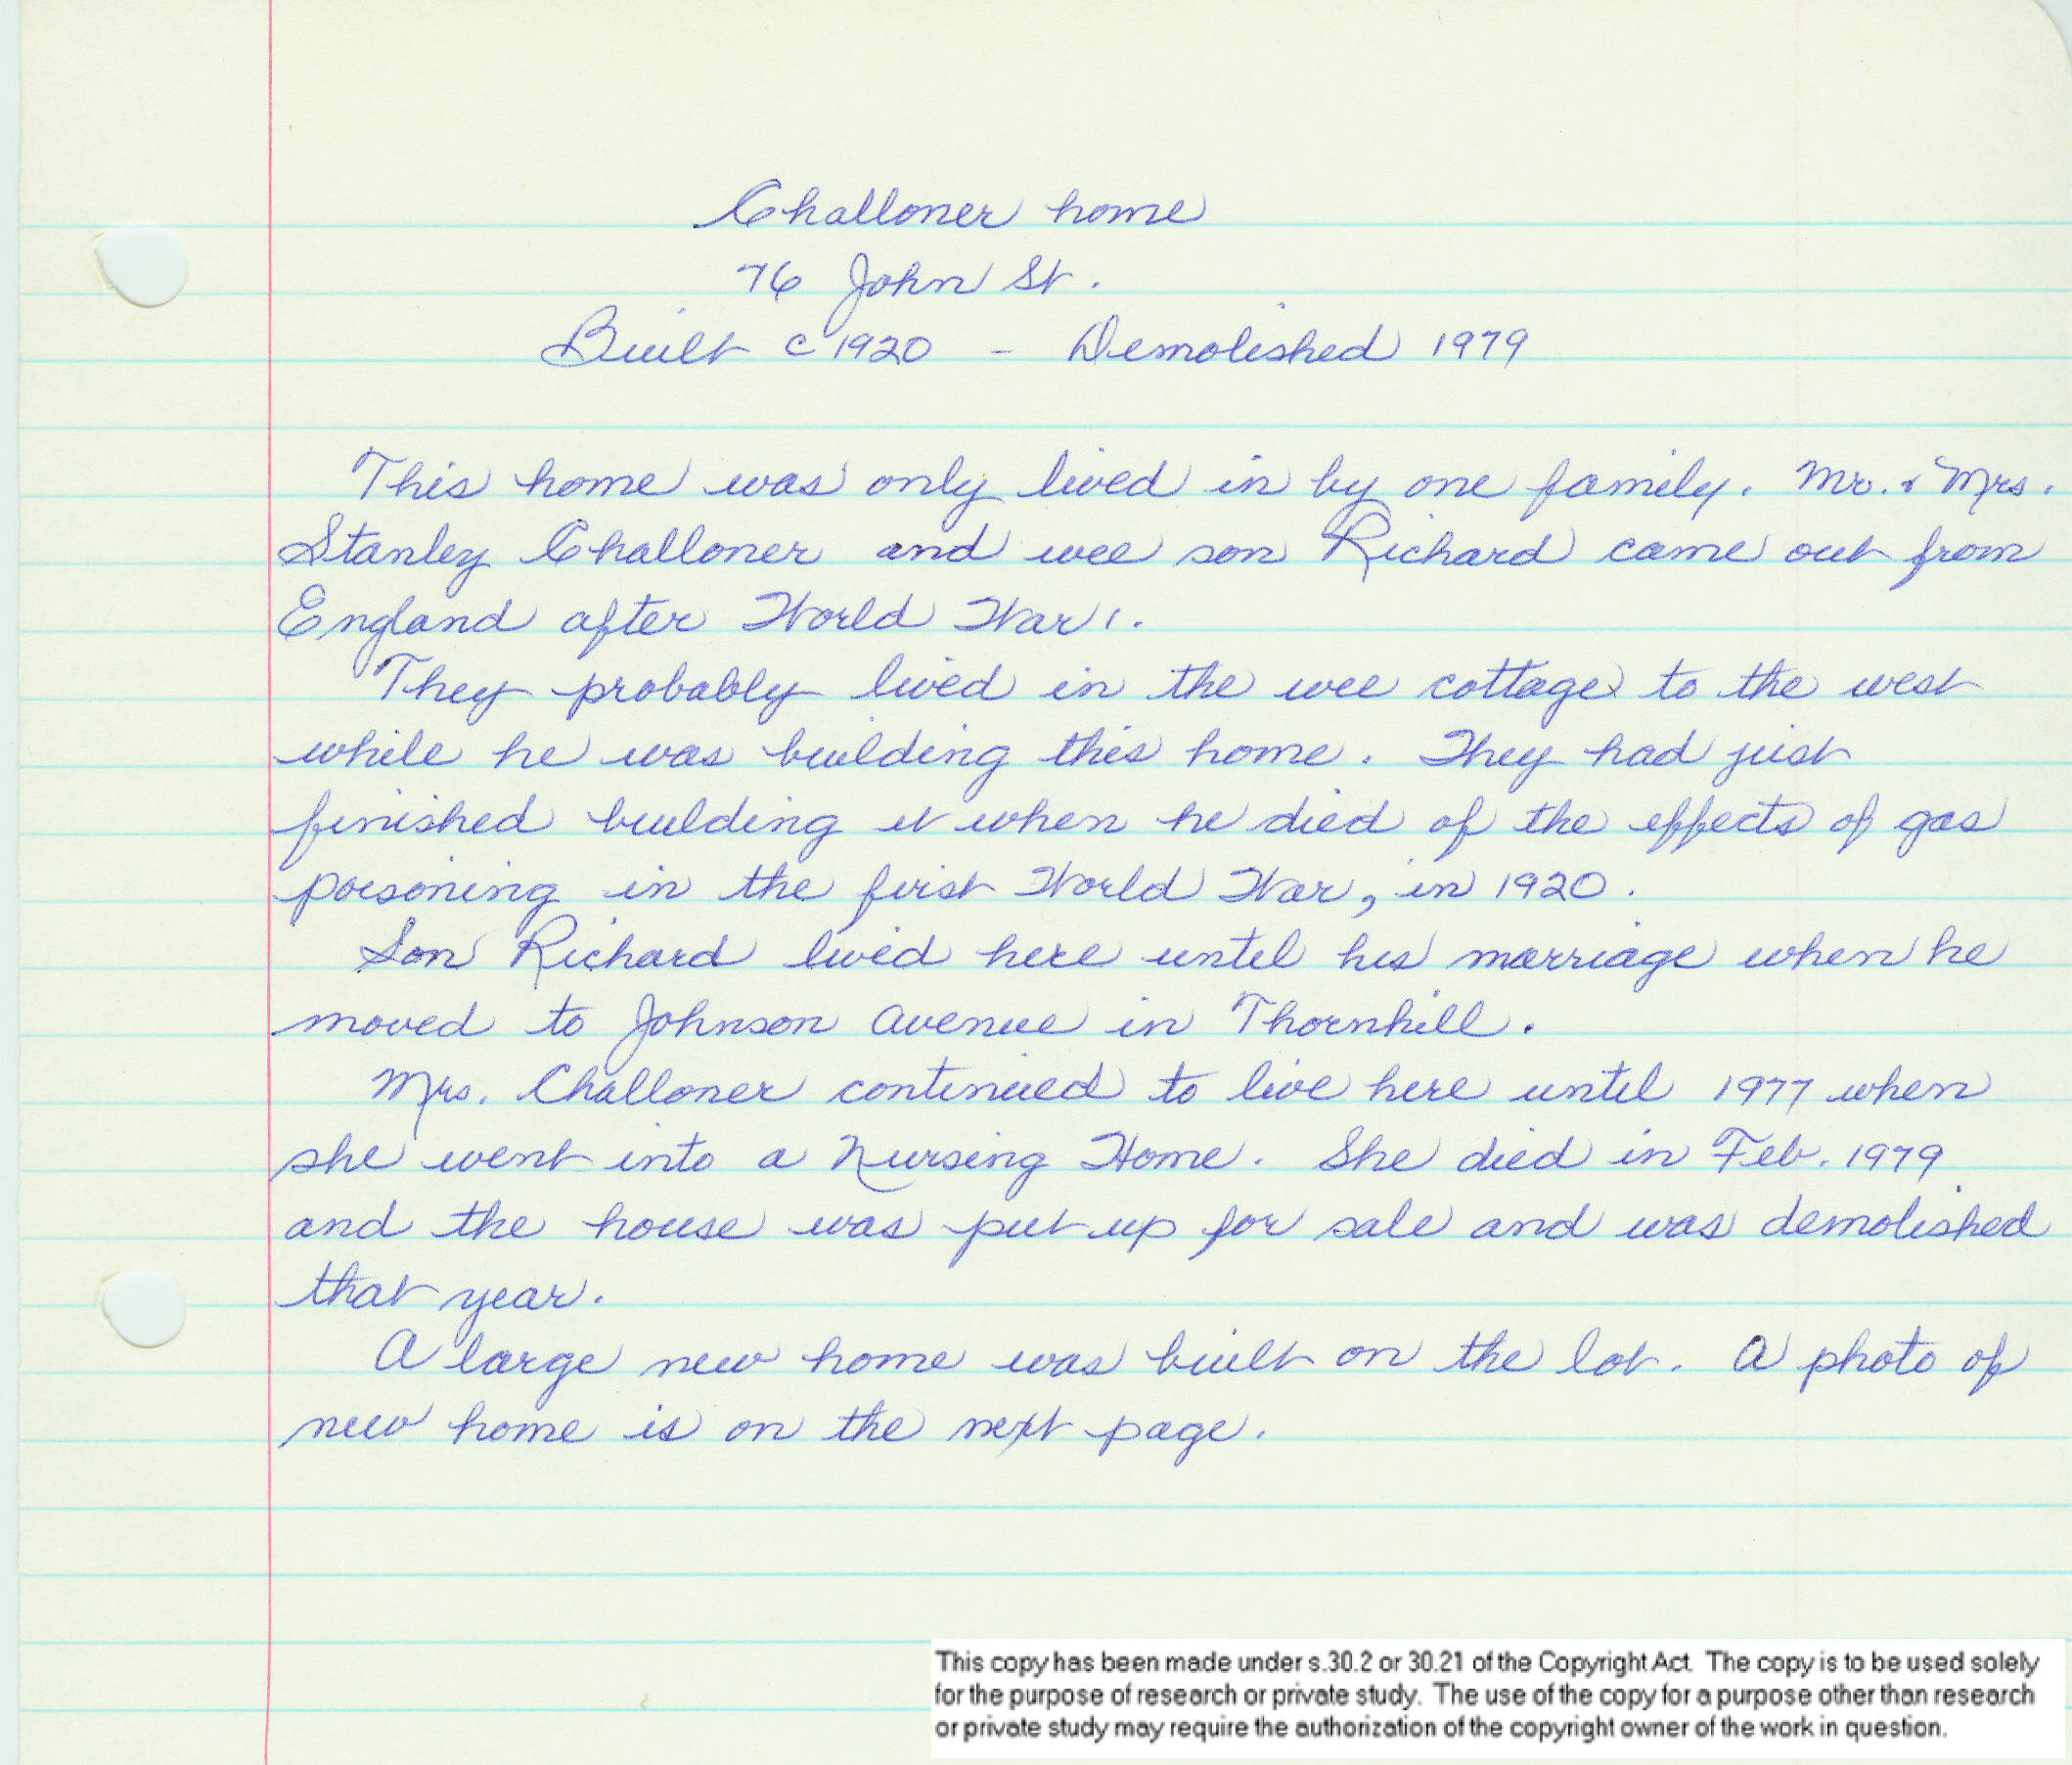 Challoner home
76 John St.
Built c 1920 - Demolished 1979
This home was only lived in by one family. Mr. & Mrs.
Stanley Challoner and wee son Richard came out from
England after World War 1.
They probably lived in the wee cottage to the west
while he was building this home. They had just
finished building it when he died of the effects of gas
poisoning in the first World War, in 1920.
Son Richard lived here until his marriage when he
moved to Johnson Avenue in Thornhill.
Mrs. Challoner continued to live here until 1977 when
she went into a Nursing Home. She died in Feb. 1979
and the house was put up for sale and was demolished
that year.
A large new home was built on the lot. A photo of
new home is on the next page.
This copy has been made under s.30.2 or 30.21 of the Copyright Act. The copy is to be used solely
for the purpose of research or private study. The use of the copy for a purpose other than research
or private study may require the authorization of the copyright owner of the work in question.